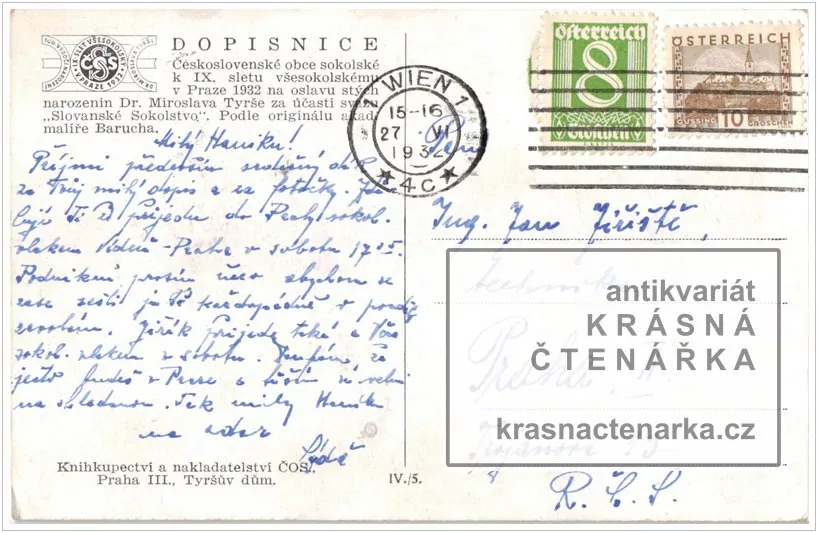 DOPISNICE
Československé obce sokolské
k IX. sletu všesokolskému
v Praze 1932 na oslavu stých
narozenin Dr. Miroslava Tyrše za účasti svazu
„Slovanské Sokolstvo". Podle originálu akad.
malíře Barucha.
IX. SLET VŠESOKOLSKÝ
ČOS
V PRAZE 1932
WIEN 1
15-16
27 VI
1932
4c
Österreich
8
Groschen
ÖSTERREICH
10
GÜSSING GROSCHEN
Milý Heníku!
Přijmi především srdečný dík
za Tvůj milý dopis a za fotečky.
Ti přijedu do Prahy sokol.
vlakem Vídeň-Praha v sobotu
Podnikni prosím abychom se
zase sešli každopádně
Jiřík přijede také a
sokol. vlakem v sobotu. Doufám, že
budeš v Praze a těším se velmi
na shledanou. Tak milý Heníku
na zdar
Ing. Jan Jiřiště,
Praha II.
Trojanova 13
R. Č. S.
antikvariát
KRÁSNÁ
ČTENÁŘKA
krasnactenarka.cz
Knihkupectví a nakladatelství ČOS,
Praha III., Tyršův dům.
IV./5.